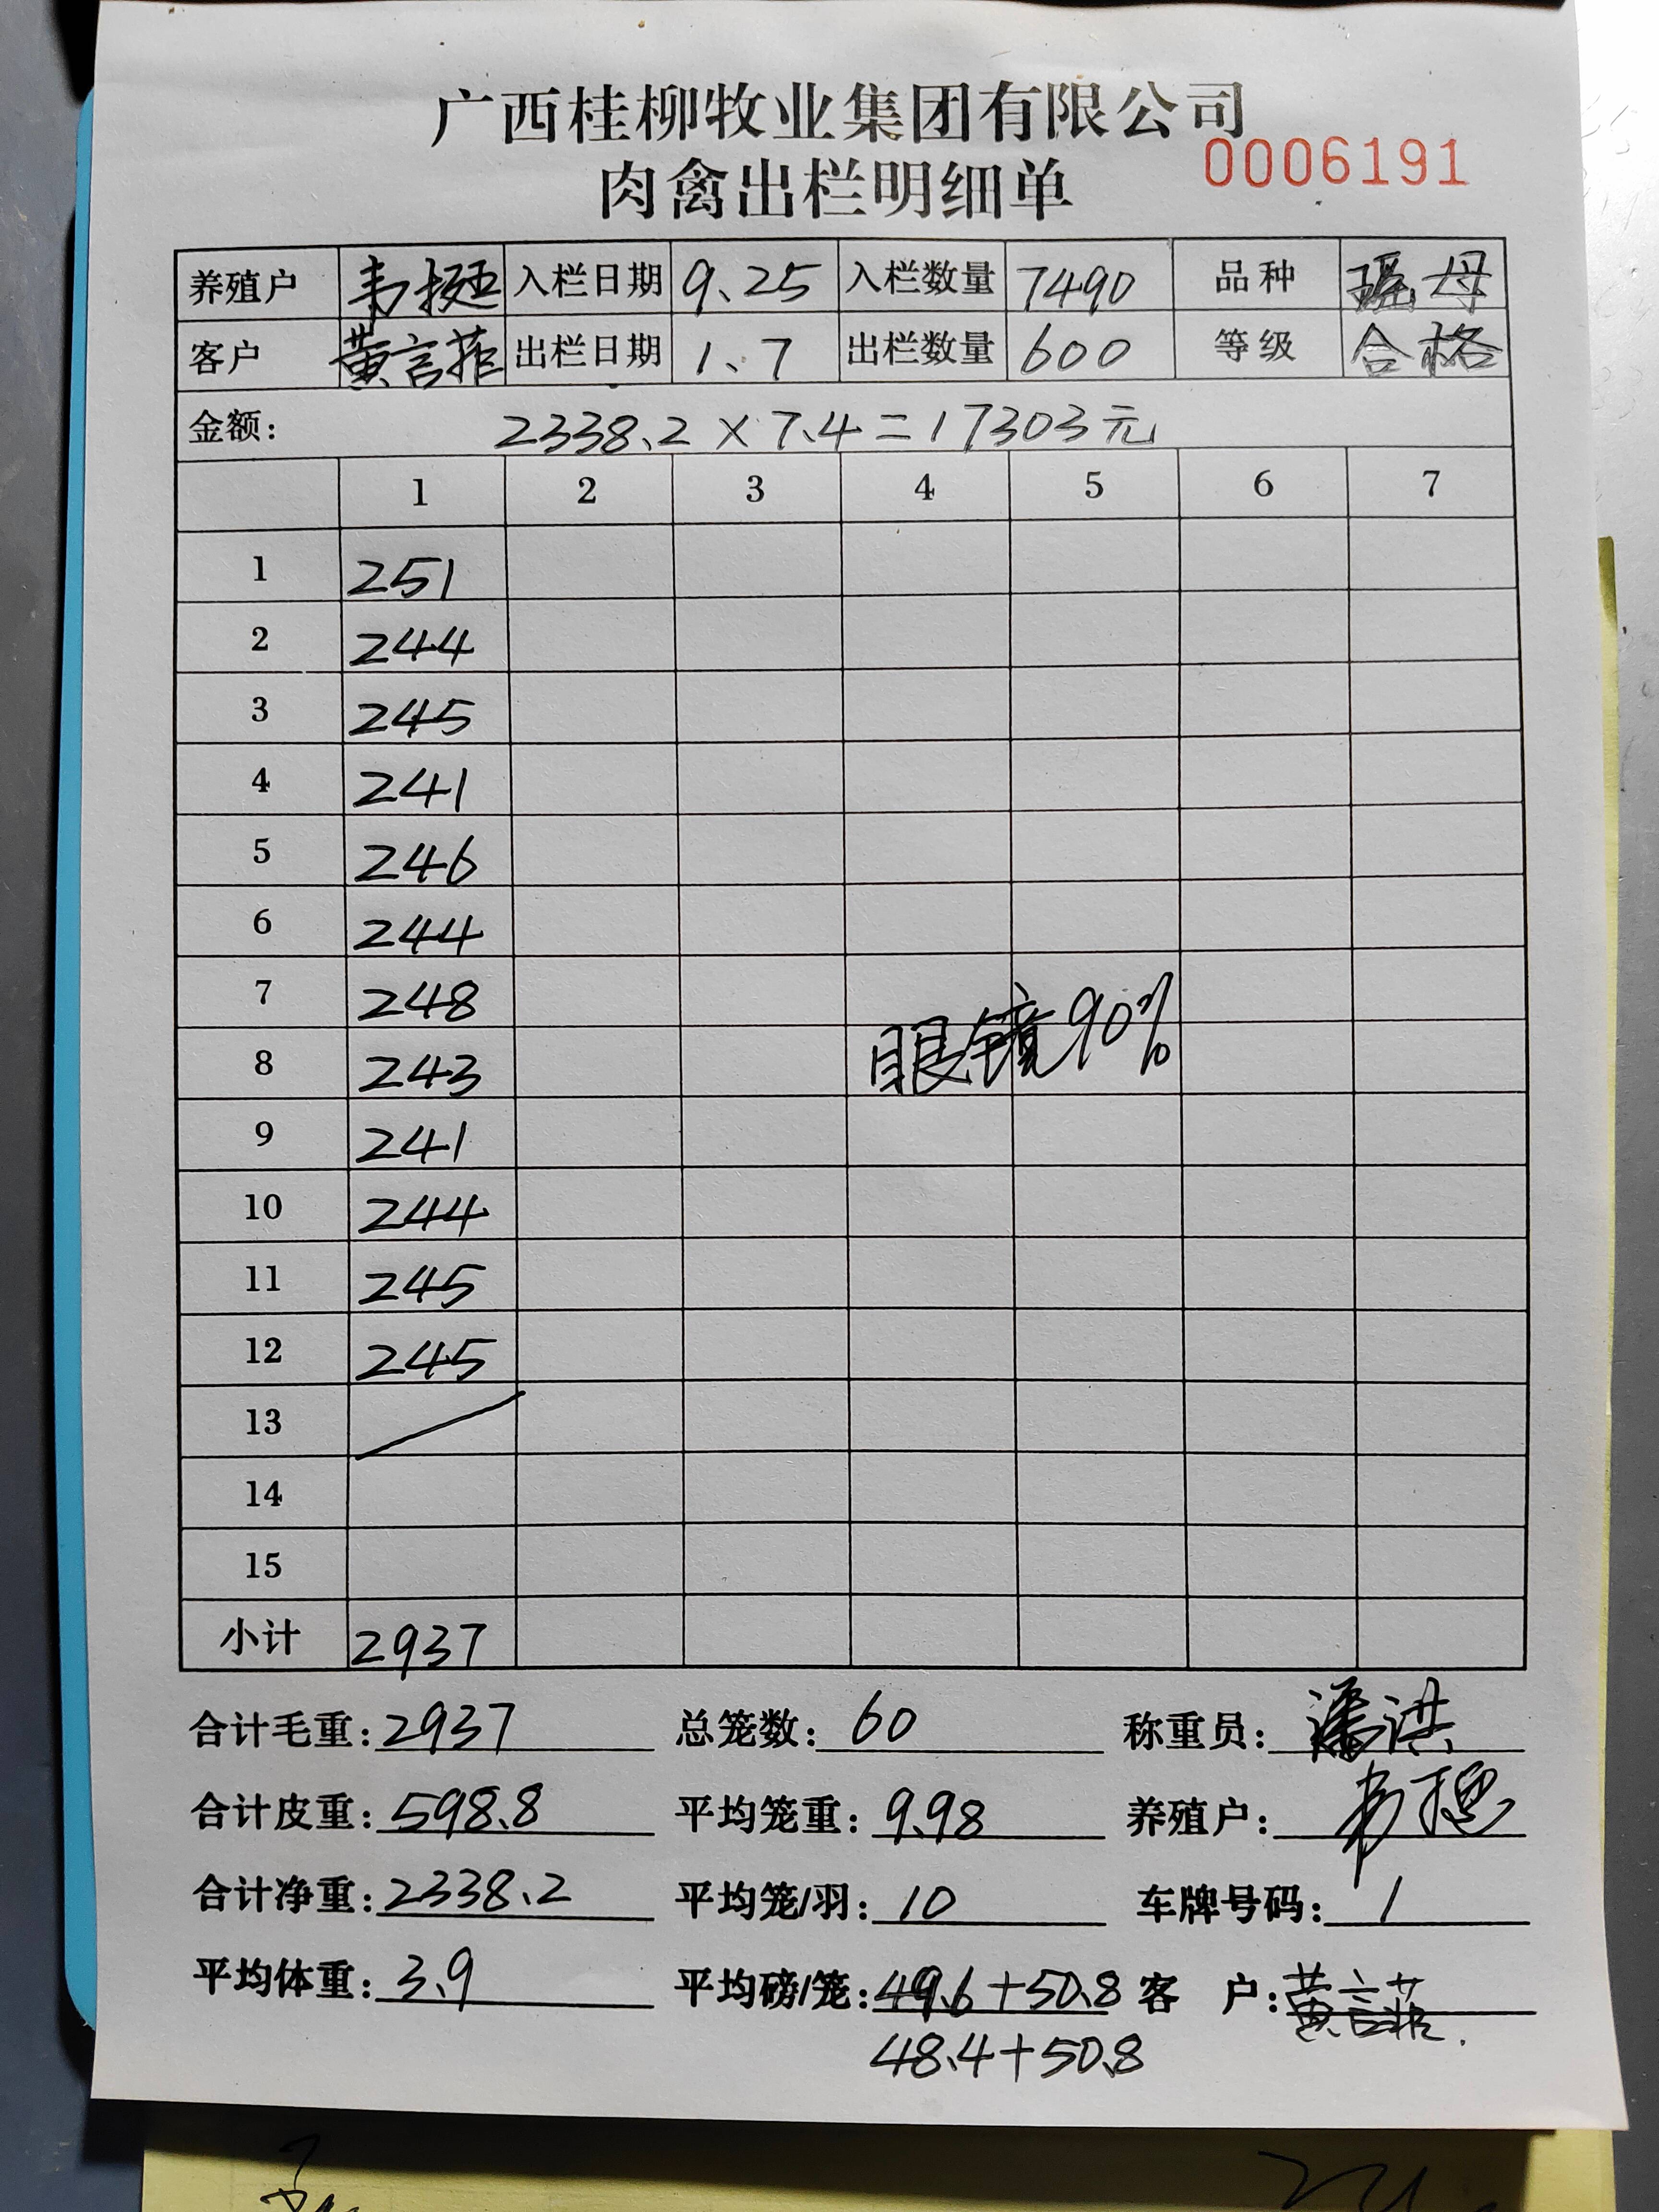 广西桂柳牧业集团有限公司
肉禽出栏明细单
0006191
养殖户 韦挺 入栏日期 9.25 入栏数量 7490 品种 瑶母
客户 黄言菲 出栏日期 1.7 出栏数量 600 等级 合格
金额: 2338.2×7.4=17303元
1 2 3 4 5 6 7
1 251
2 244
3 245
4 241
5 246
6 244
7 248
8 243
眼镜90%
9 241
10 244
11 245
12 245
13
14
15
小计 2937
合计毛重:2937 总笼数:60 称重员:潘洪
合计皮重:598.8 平均笼重:9.98 养殖户:韦挺
合计净重:2338.2 平均笼/羽:10 车牌号码:1
平均体重:3.9 平均磅/笼:49.6+50.8 客户:黄言菲.
48.4+50.8